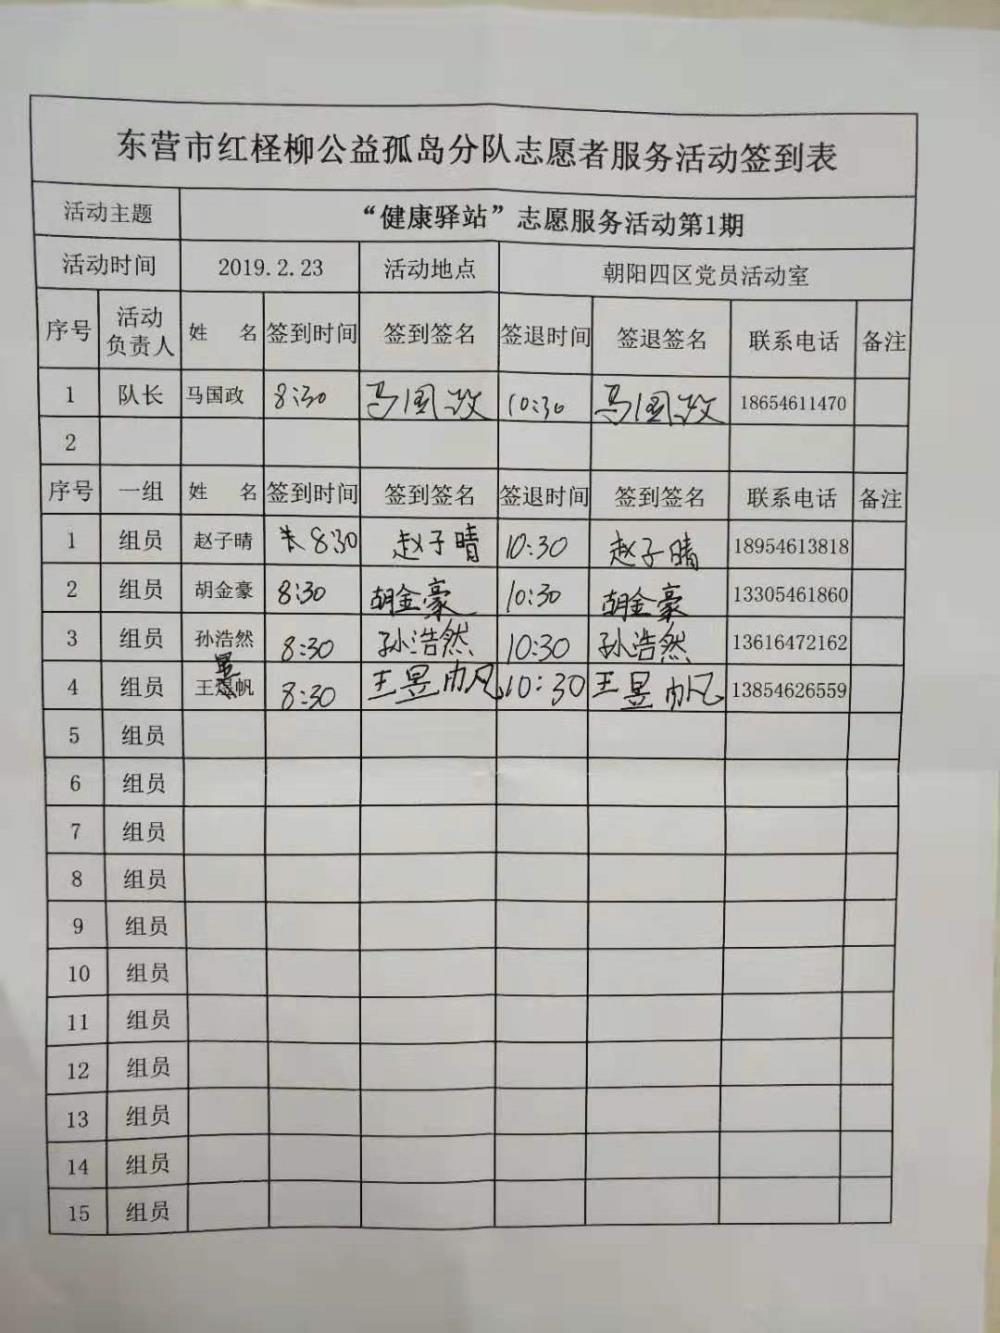 东营市红柽柳公益孤岛分队志愿者服务活动签到表
活动主题 “健康驿站”志愿服务活动第1期
活动时间 2019.2.23 活动地点 朝阳四区党员活动室
序号 活动负责人 姓 名 签到时间 签到签名 签退时间 签退签名 联系电话 备注
1 队长 马国政 8:30 马国政 10:30 马国政 18654611470
2
序号 一组 姓 名 签到时间 签到签名 签退时间 签到签名 联系电话 备注
1 组员 赵子晴 8:30 赵子晴 10:30 赵子晴 18954613818
2 组员 胡金豪 8:30 胡金豪 10:30 胡金豪 13305461860
3 组员 孙浩然 8:30 孙浩然 10:30 孙浩然 13616472162
昱
4 组员 王煜帆 8:30 王昱帆 10:30 王昱帆 13854626559
5 组员
6 组员
7 组员
8 组员
9 组员
10 组员
11 组员
12 组员
13 组员
14 组员
15 组员